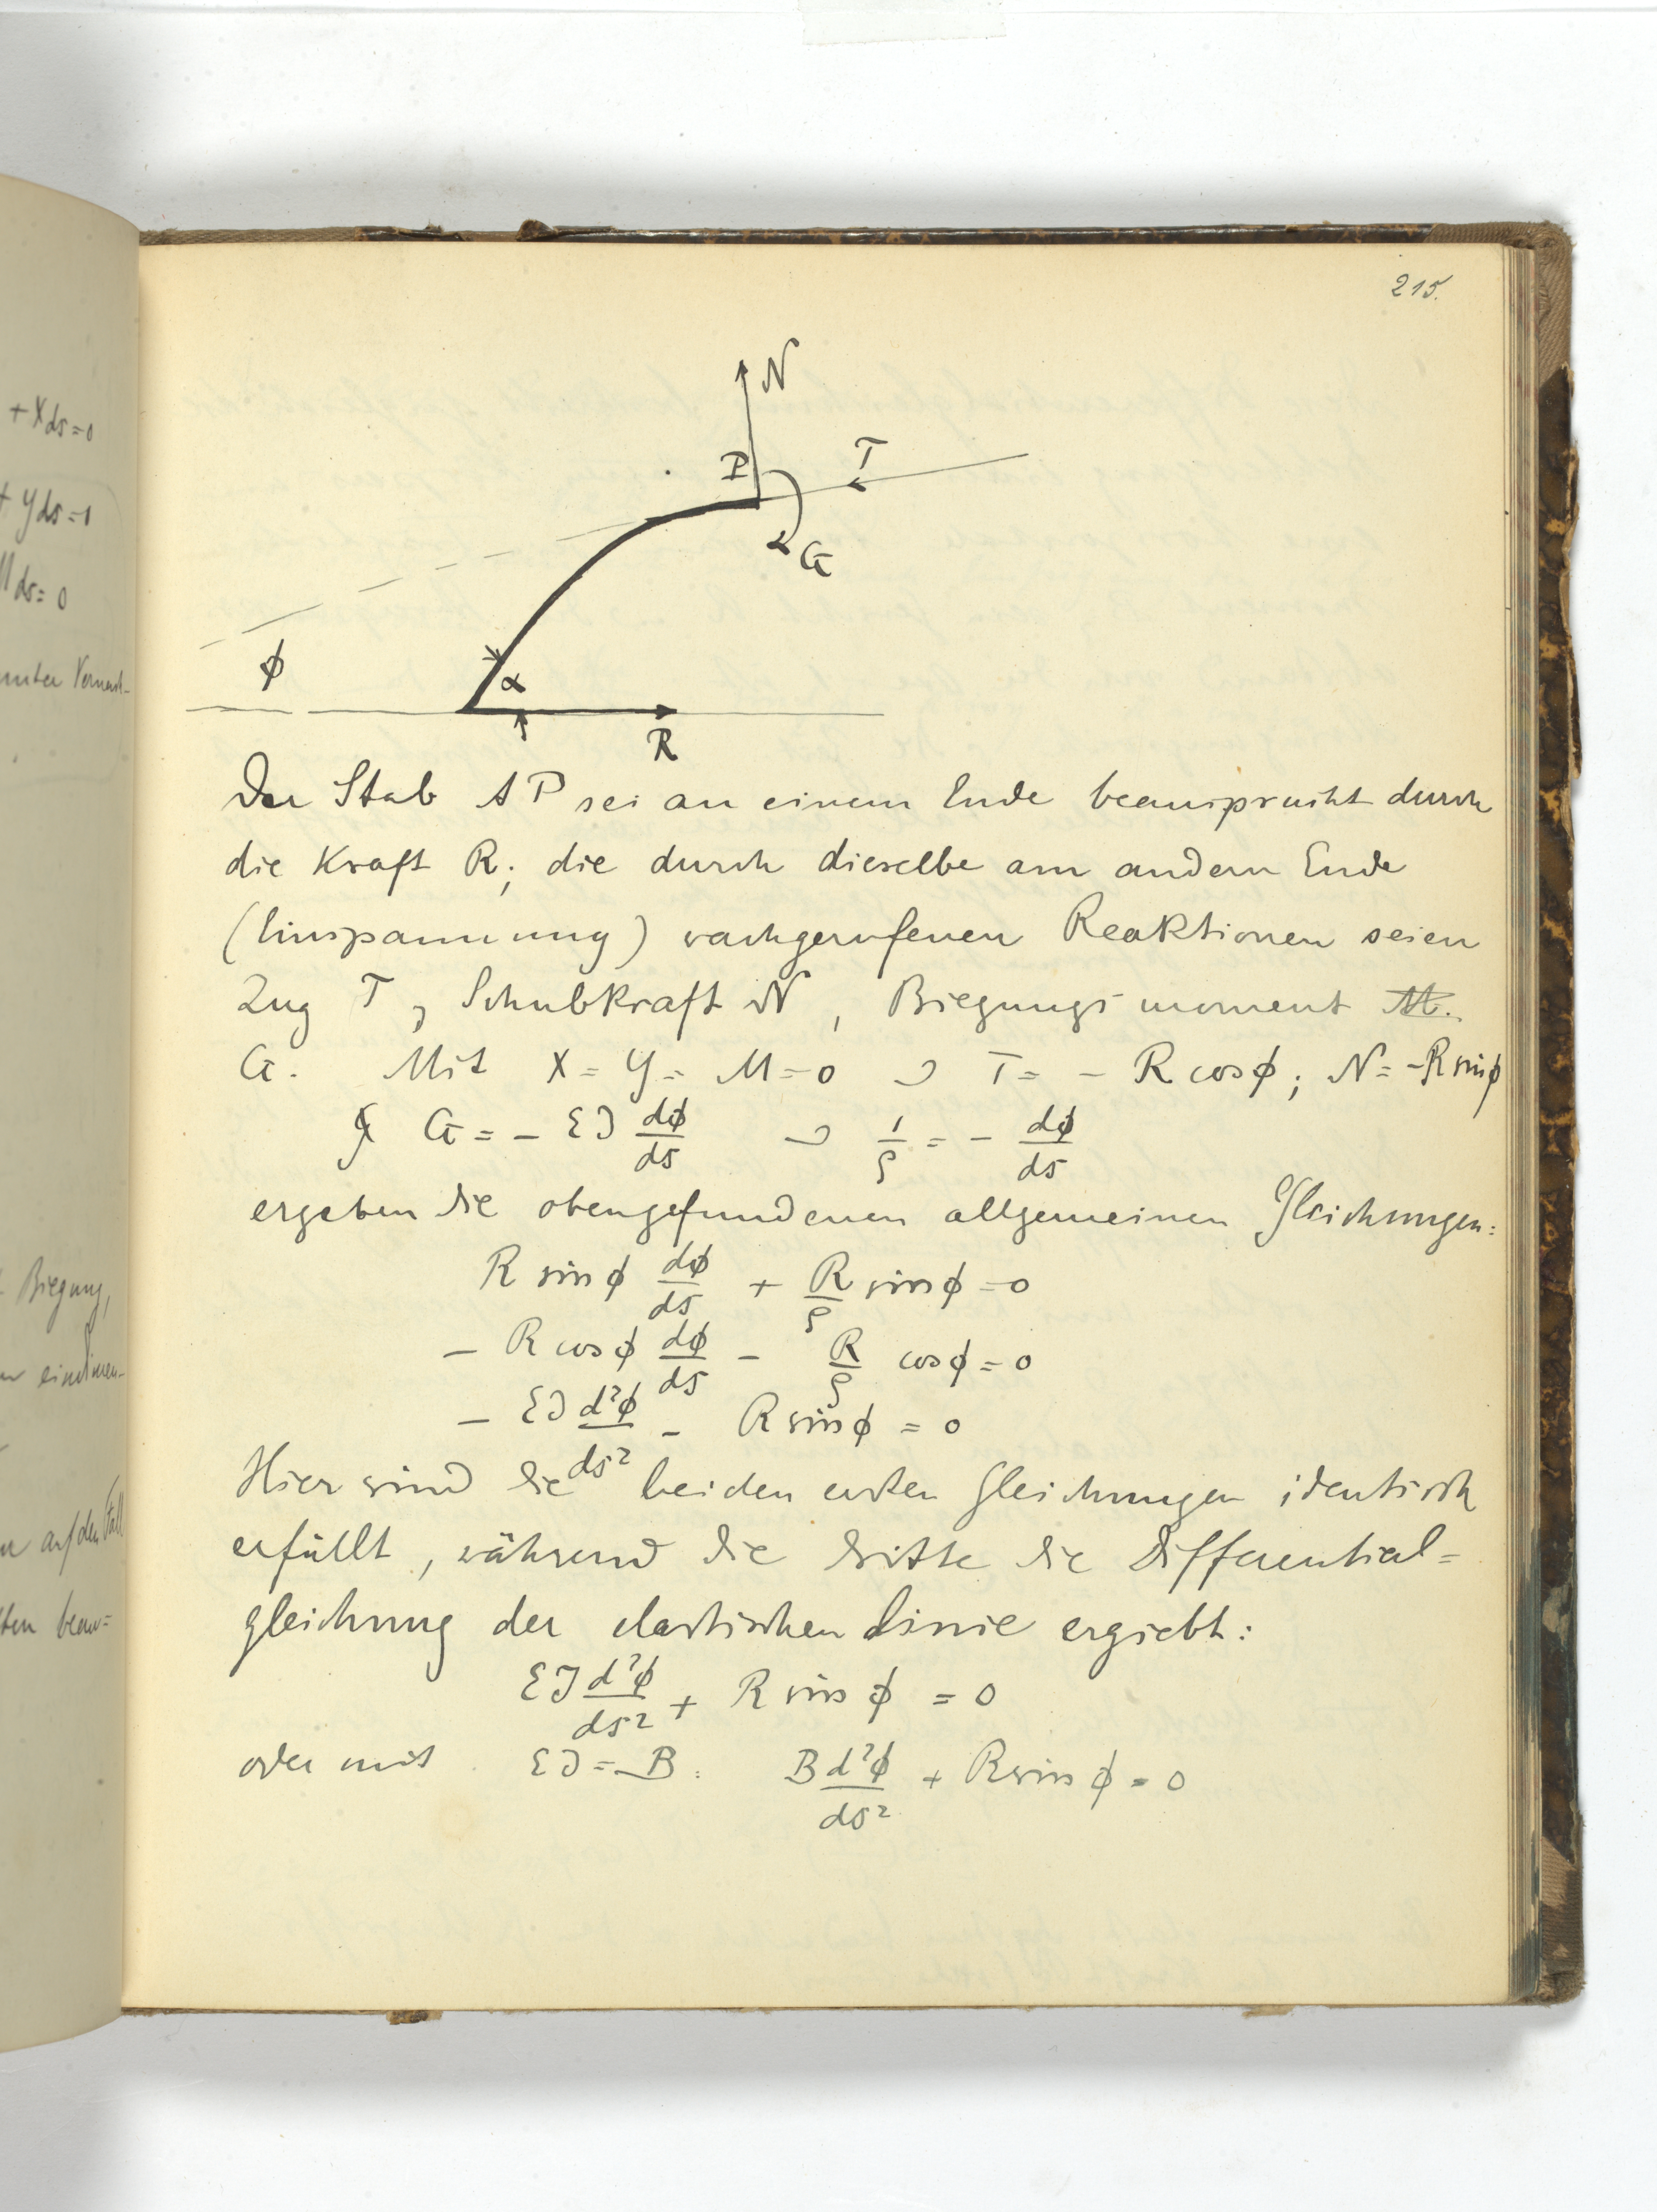 + Xds = 0
+ Yds = 0
M ds = 0
Biegung,
215.
N
P
T
G
ϕ
α
R
Der Stab AP sei an einem Ende beansprucht durch
die Kraft R; die durch dieselbe am andern Ende
(Einspannung) wachgerufenen Reaktionen seien
Zug T, Schubkraft N, Biegungsmoment M.
G. Mit X = Y = M = 0 & T = - R cosϕ; N = - R sinϕ
& G = - EJ dϕ/ds & 1/ρ = - dϕ/ds
ergeben die obengefundenen allgemeinen Gleichungen:
R sinϕ dϕ/ds + R/ρ sinϕ = 0
- R cosϕ dϕ/ds - R/ρ cosϕ = 0
- EJ d²ϕ/ds² - R sinϕ = 0
Hier sind die beiden ersten Gleichungen identisch
erfüllt, während die dritte die Differential=
gleichung der elastischen Linie ergiebt:
EJ d²ϕ/ds² + R sin ϕ = 0
oder mit EJ = B: B d²ϕ/ds² + R sin ϕ = 0